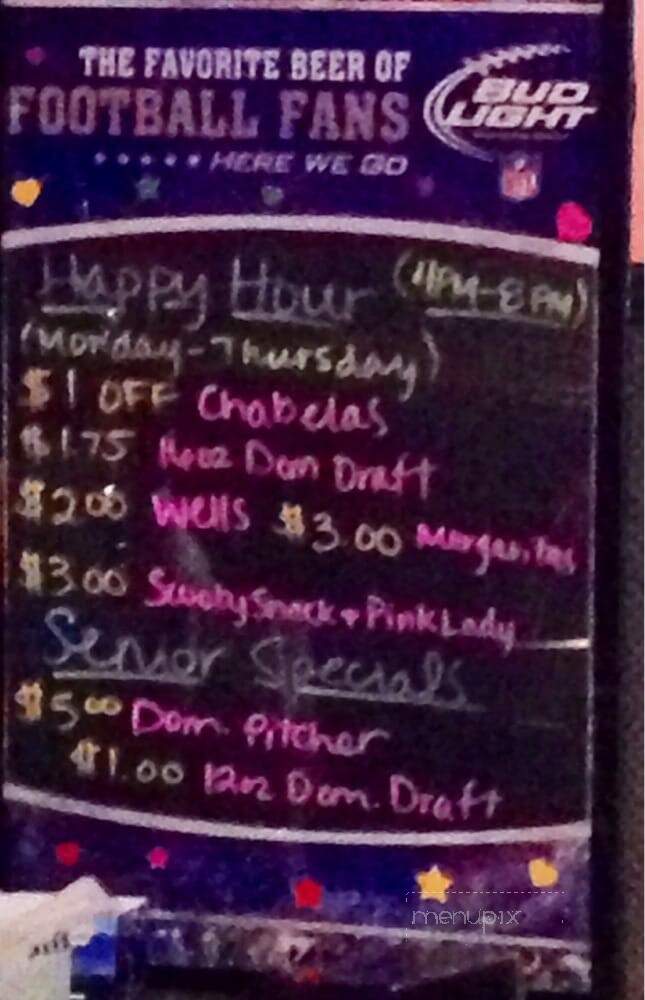 THE FAVORITE BEER OF
FOOTBALL FANS
HERE WE GO
BUD
LIGHT
Happy Hour (4PM-8PM)
(Monday-Thursday)
$1 OFF Chabelas
$1.75 16oz Dom Draft
$2.00 Wells $3.00 Margaritas
$3.00 Scooby Snack + Pink Lady
Senior Specials
$5.00 Dom. Pitcher
$1.00 12oz Dom. Draft
menupix